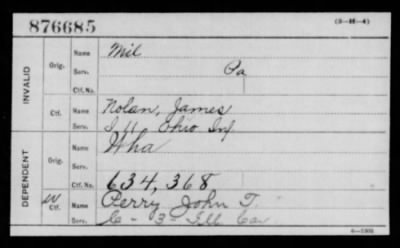 876685 (3-H-4)
INVALID
Orig. Name Mil
Serv. Pa
Ctf. No.
Ctf. Name Nolan, James
Serv. Ohio Inf
DEPENDENT
Orig. Name Wha
Serv.
Ctf. No. 634,368
W Ctf. Name Perry John T.
Serv. C - 3 - Ill Cav